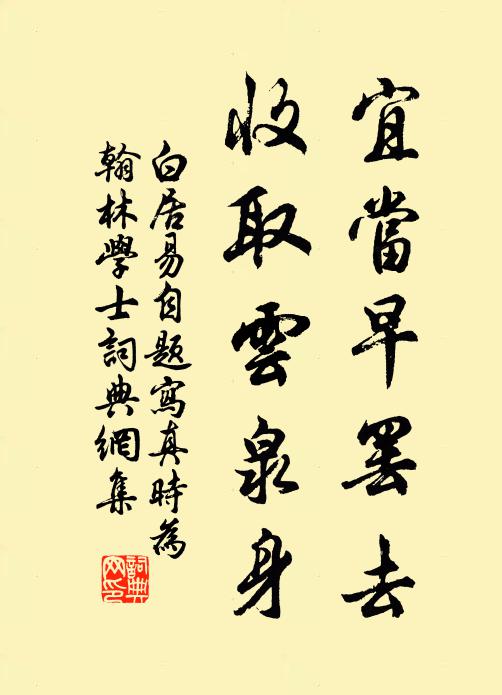 宜當早罷去
收取雲泉身
白居易自題寫真時為
翰林學士詞典網集
詞典网印